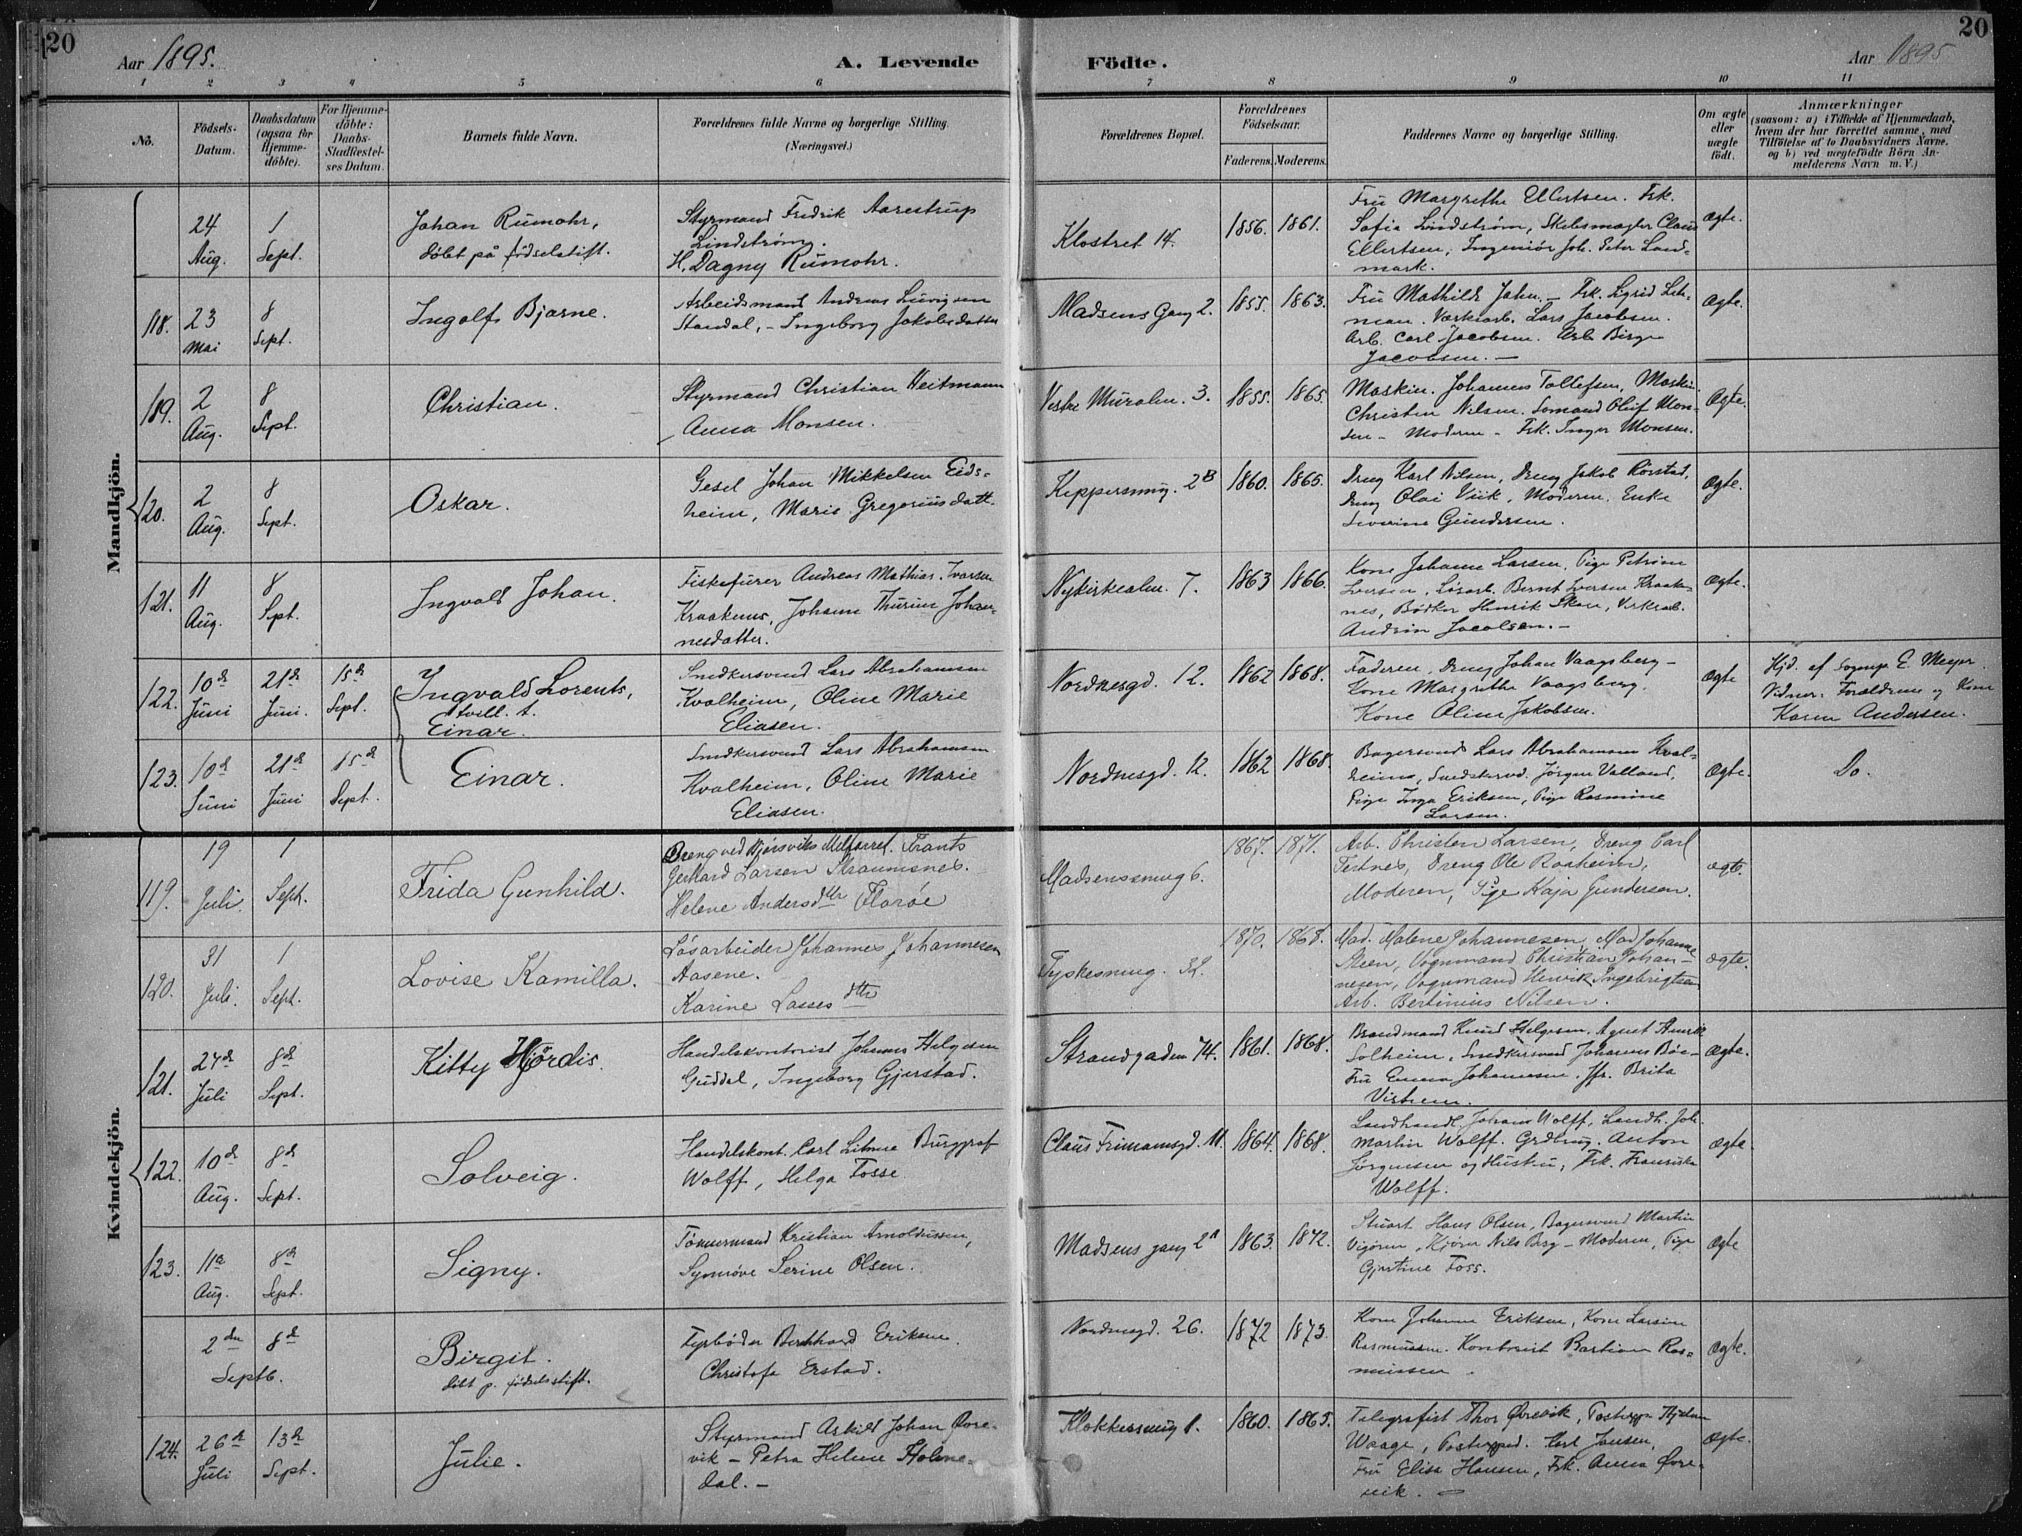 20
Aar 1895.
A. Levende
Födte.
Aar 1895
20
1 2 3 4 5 6 7 8 9 10 11
No.
Födsels-
Datum.
Daabsdatum
(ogsaa for
Hjemme-
döbte).
For Hjemme-
döbte:
Daabs-
Stadfæstel-
ses Datum.
Barnets fulde Navn.
Forældrenes fulde Navne og borgerlige Stilling.
(Næringsvei.)
Forældrenes Bopæl.
Forældrenes
Födselsaar.
Faderens. Moderens.
Faddernes Navne og borgerlige Stilling.
Om ægte
eller
uægte
födt.
Anmærkninger
(saasom: a) i Tilfælde af Hjemmedaab,
hvem der har forrettet samme, med
Tilföielse af to Daabsvidners Navne.
og b) ved uægtefödte Börn An-
melderens Navn m. V.)
Mandkjön.
24
Aug.
1
Sept.
Johan Rumohr,
döbt på födselsstift.
Styrmand Fredrik Aarestrup
Lindstrøm.
H. Dagny Rumohr.
Klostret 14.
1856. 1861.
Fru Margrethe Ellertsen. Frk.
Sofie Lindstrøm, Skibsmægler Claus
Ellertsen, Ingeniör Joh. Peter Land-
mark.
Ægte.
118.
23
Mai
8
Sept.
Ingolf Bjarne.
Arbeidsmand Andreas Luvigsen
Standal, - Ingeborg Jakobsdatter
Madsens Gang 2.
1855. 1863.
Fru Mathilde Jahn. - Frk. Sigrid Leh-
man. Værkarb. Lars Jacobsen.
Arb. Carl Jacobsen. Arb. Birger
Jacobsen. -
Ægte.
119.
2
Aug.
8
Sept.
Christian.
Styrmand Christian Heitmann
Anna Monsen.
Vestre Muralm. 3.
1855. 1865.
Maskin. Johannes Tollefsen, Maskin.
Christen Nilsen. Sömand Oluf Mon-
sen - Moderen - Frk. Inger Monsen.
Ægte.
120.
2
Aug.
8
Sept.
Oskar.
Gesel Johan Mikkelsen Eids-
heim, Marie Gregoriusdatt.
Kippersmug. 2B
1860. 1865.
Dreng Karl Nilsen, Dreng Jakob Rörstad,
Dreng Olai Viik, Moderen. Enke
Severine Gundersen.
Ægte.
121.
11
Aug.
8
Sept.
Ingvald Johan.
Fiskefører Andreas Mathias Ivarsen
Kraakenes, Johanne Thurine Johan-
nesdatter.
Nykirkealm. 7.
1863 1866.
Kone Johanne Larsen, Pige Petrine
Iversen, Løsarb. Bernt Iversen Kraake-
nes, Bødker Henrik Skau, Verkarb.
Andreas Jacobsen. -
Ægte.
122.
10de
Juni
21de
Juni.
15de
Sept.
Ingvald Lorents,
tvill. 1.
Einar.
Snedkersvend Lars Abrahamsen
Kvalheim, Oline Marie
Eliasen.
Nordnesgd. 12.
1862 1868.
Faderen, Dreng Johan Vaagsberg -
Kone Margrethe Vaagsberg.
Kone Oline Jakobsen.
Ægte
Hjd. af Sognep. E. Meyer.
Vidner. Forældrene og Kone
Karen Andersen.
123.
10de
Juni
21de
Juni
15de
Sept.
Einar.
Snedkersvend Lars Abrahamsen
Kvalheim, Oline Marie
Eliasen.
Nordnesgd. 12.
1862 1868.
Bagersvend Lars Abrahamsen Kval-
heim, Snedkersvd. Jörgen Valland,
Pige Inga Eriksen, Pige Rasmine
Larsen.
Ægte.
Do.
Kvindekjön.
119.
19
Juli.
1
Sept.
Frida Gunhild.
Dreng ved Bjørsviks Melforret. Frants
Gerhard Larsen Straumsnes.
Helene Andersdttr Florøe
Madsenssmug 6.
1867. 1871.
Arb. Christen Larsen, Dreng Carl
Tertnes, Dreng Ole Raaheim,
Moderen, Pige Kaja Gundersen.
ægte.
120.
31
Juli.
1
Sept.
Lovise Kamilla.
Løsarbeider Johannes Johannesen
Aasene.
Karine Lassesdttr
Tyskesmug. 32.
1870. 1868.
Mad. Malene Johannesen, Mad Johanne
Steen, Vognmand Christian Johan-
nesen, Vognmand Henrik Ingebrigtsen
Arb. Bertinius Nilsen.
ægte.
121.
27de
Juli
8de
Sept.
Kitty Hjørdis.
Handelskontorist Johannes Helgesen
Guddal, Ingeborg Gjerstad.
Strandgaden 74.
1861. 1868.
Brandmand Knud Helgesen, Agent Henrik
Solheim, Snedkersvend Johannes Böe -
Fru Emma Johannesen. Jfr. Brita
Ægte.
122.
10de
Aug.
8de
Sept.
Solveig.
Handelskont. Carl Burggraf
Wolff, Helga Fosse
Claus Frimannsgd. 11.
1864. 1868.
Landhandl. Johan Wolff, Landh. Joh.
Martin Wolff. Anton
Jörgensen og Hustru, Frk. Fransiska
Wolff.
Ægte
123.
11te
Aug.
8de
Sept.
Signy.
Tömmermand Kristian Arnoldussen,
Synnöve Serine Olsen.
Madsens gang 2A
1863. 1872.
Stuart Hans Olsen, Bagersvend Martin
Nils Berg - Moderen, Pige
Gjertine Foss.
Ægte
2den
Septb.
8de
Birgit.
döbt p. födselsstift.
Fyrböder Bernhard Eriksen.
Christofa Erstad.
Nordnesgd. 26.
1872 1873.
Kone Johanne Eriksen, Kone Larsine
Rasmussen. Kontorist Bastian Ras-
mussen.
Ægte.
124.
26de
Juli
13de
Sept.
Julie.
Styrmand Askild Johan Øvre-
vik - Petra Helene Holme-
dal. -
Klokkersmug 1.
1860. 1865.
Telegrafist Thor Øvrevik, Hjelm
Waage, Karl Jansen,
Fru Elisa Hansen, Frk. Anna Øvre-
vik. -
Ægte.